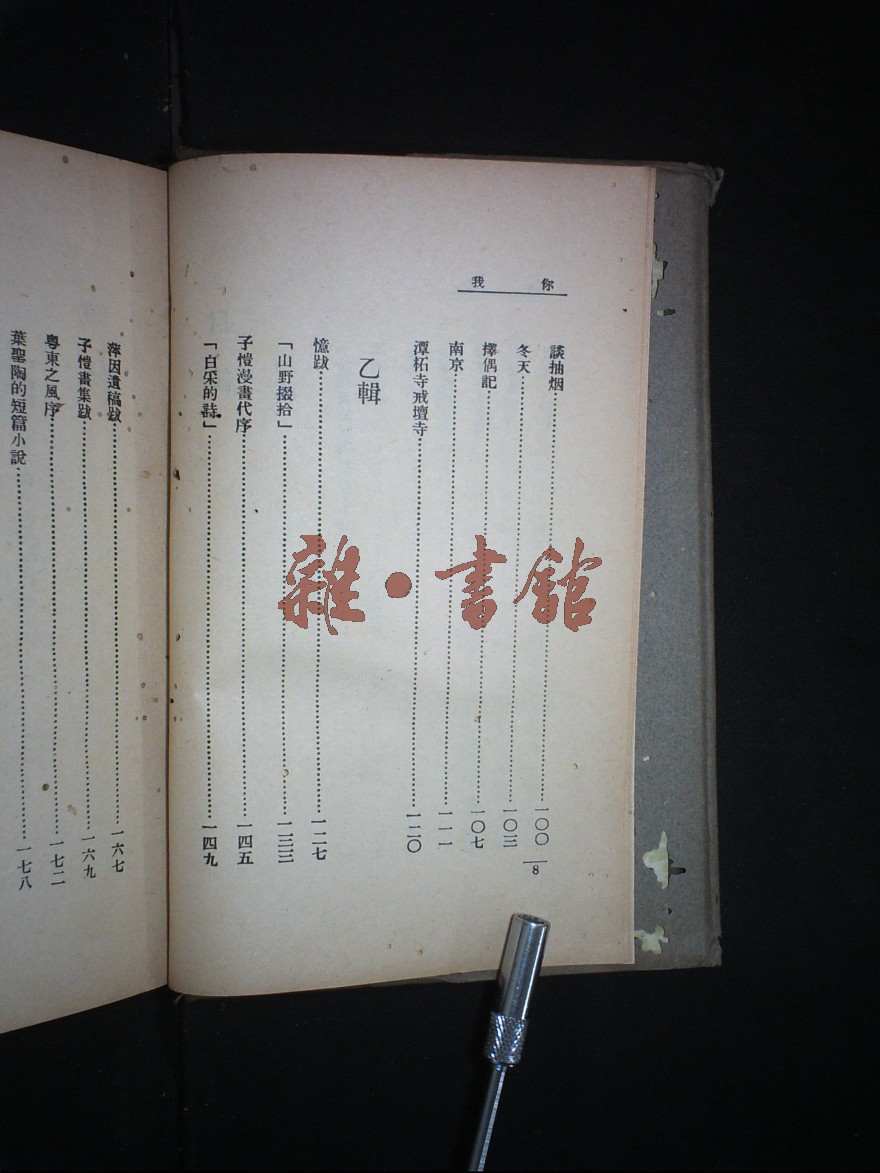 你我
談抽烟……一〇〇
冬天……一〇三
擇偶記……一〇七
南京……一一一
潭柘寺戒壇寺……一二〇
乙輯
憶跋……一二七
「山野掇拾」……一三三
子愷漫畫代序……一四五
「白采的詩」……一四九
8
萍因遺稿跋……一六七
子愷畫集跋……一六九
粵東之風序……一七二
葉聖陶的短篇小說……一七八
雜·書館